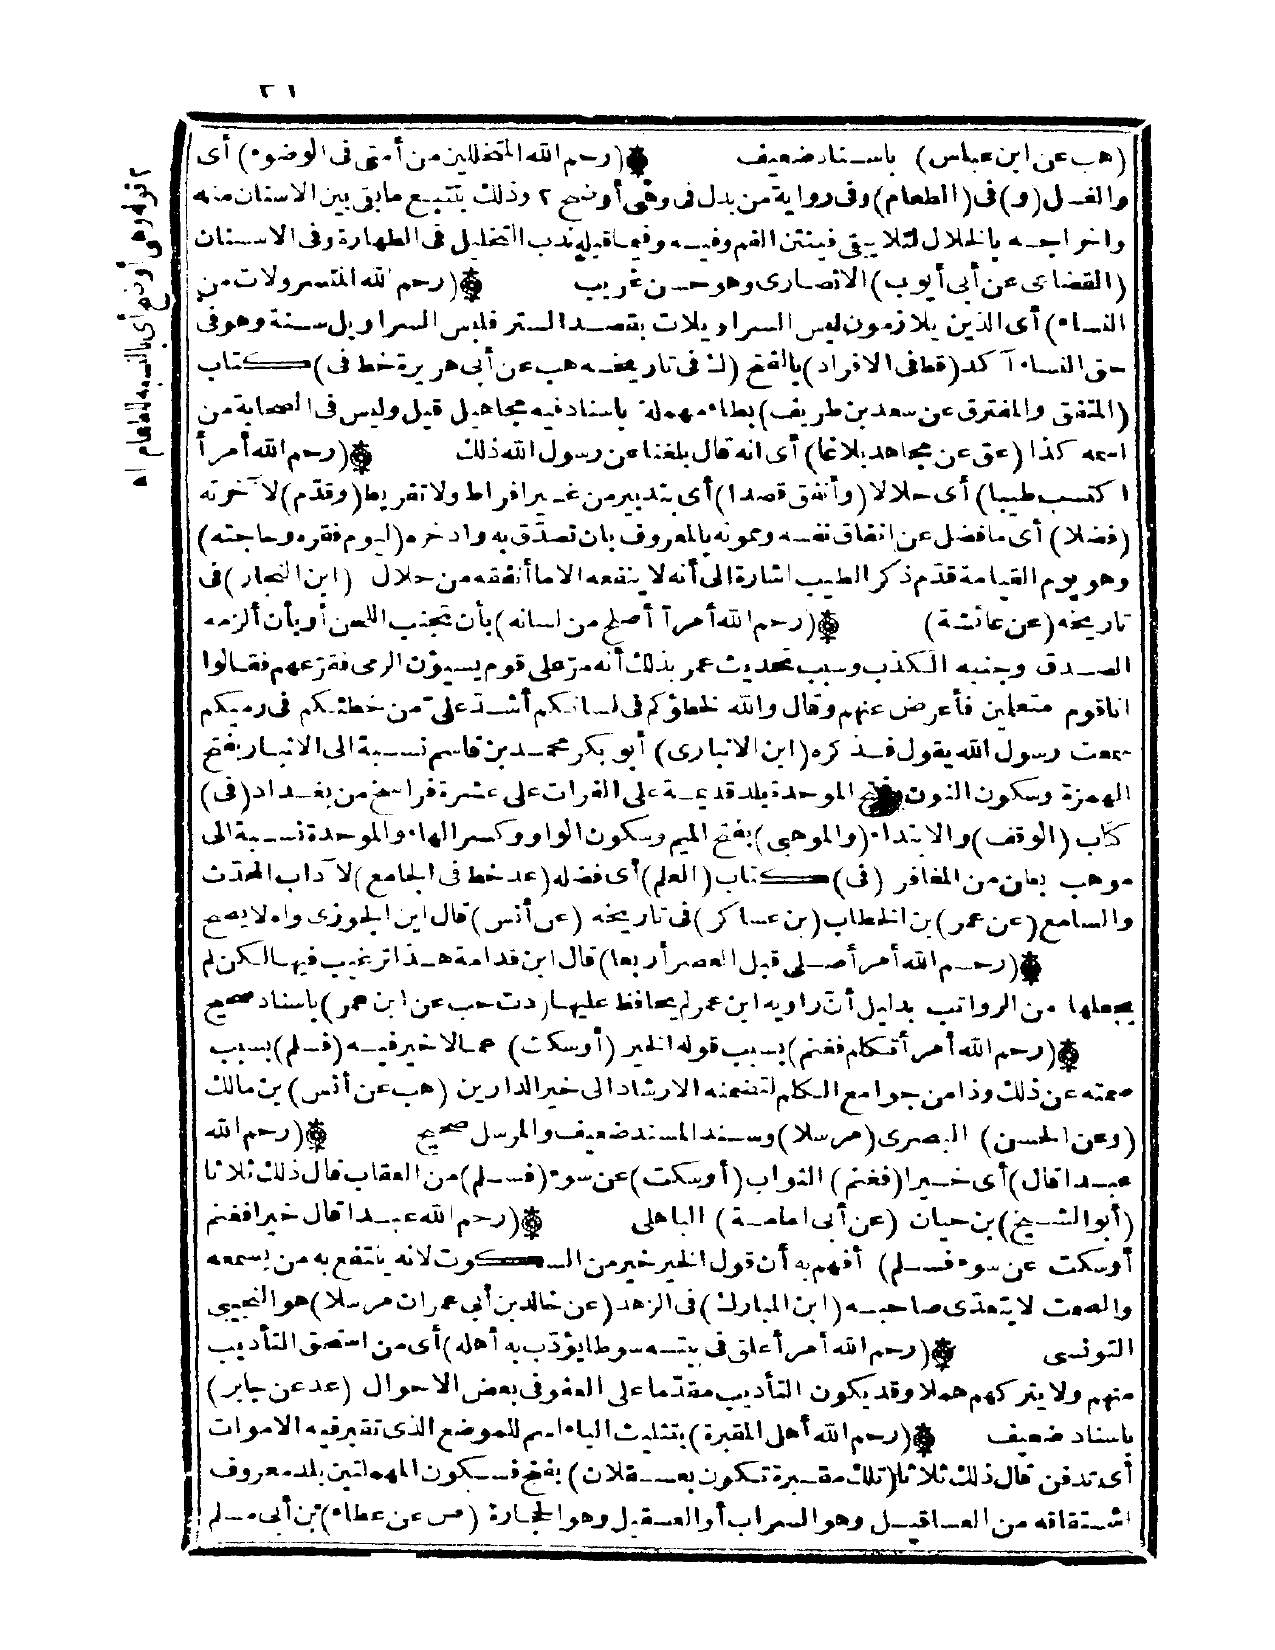 ٣١
(هب عن ابن عباس) باسناد ضعيف ۞(رحم الله المتخللين من أمتى فى الوضوء) أى
والغسل (و) فى (الطعام) وفى رواية من بدل فى وهى أوضح ٢ وذلك بتتبع ما بقى بين الاسنان منه
واخراجه بالخلال لئلا يبقى فينتن الفم وفيه وفيما قبله ندب التخليل فى الطهارة وفى الاسنان
(القضاعى عن أبى أيوب) الانصارى وهو حسن غريب ۞(رحم الله المتسرولات من
النساء) أى الذين يلازمون لبس السراويلات بقصد الستر فلبس السراويل سنة وهو فى
حق النساء آكد (قط فى الافراد) بالفتح (ك فى تاريخه هب عن أبى هريرة خط فى) كتاب
(المتفق والمفترق عن سعد بن طريف) بطاء مهملة باسناد فيه مجاهيل قيل وليس فى الصحابة من
اسمه كذا (عق عن مجاهد بلاغا) أى انه قال بلغنا عن رسول الله ذلك ۞(رحم الله أمرأ
اكتسب طيبا) أى حلالا (وأنفق قصدا) أى بتدبير من غير افراط ولا تفريط (وقدّم) لآخرته
(فضلا) أى ما فضل عن انفاق نفسه وممونه بالمعروف بان تصدّق به وادخره (ليوم فقره وحاجته)
وهو يوم القيامة قدّم ذكر الطيب اشارة الى أنه لا ينفعه الا ما أنفقه من حلال (ابن النجار) فى
تاريخه (عن عائشة) ۞(رحم الله أمرآ أصلح من لسانه) بأن تجنب اللحن أو بأن ألزمه
الصدق وجنبه الكذب وسبب تحديث عمر بذلك أنه مرّ على قوم يسيؤن الرمى فقرّعهم فقالوا
اناقوم متعلمين فأعرض عنهم وقال والله لخطؤكم فى لسانكم أشدّ علىّ من خطئكم فى رميكم
سمعت رسول الله يقول فذكره (ابن الانبارى) أبو بكر محمد بن قاسم نسبة الى الانبار بفتح
الهمزة وسكون النون وفتح الموحدة بلد قديمة على الفرات على عشرة فراسخ من بغداد (فى)
كتاب (الوقف) والابتداء (والموهبى) بفتح الميم وسكون الواو وكسر الهاء والموحدة نسبة الى
موهب بطن من المغافر (فى) كتاب (العلم) أى فضله (عد خط فى الجامع) لآداب المحدث
والسامع (عن عمر) بن الخطاب (بن عساكر) فى تاريخه (عن أنس) قال ابن الجوزى واه لا يصح
۞(رحم الله أمر أصلى قبل العصر أربعا) قال ابن قدامة هذا ترغيب فيها لكن لم
يجعلها من الرواتب بدليل أنّ راويه ابن عمر لم يحافظ عليها (دت حب عن ابن عمر) باسناد صحيح
۞(رحم الله أمر أتكلم فغنم) بسبب قوله الخير (أو سكت) عما لا خير فيه (فسلم) بسبب
صمته عن ذلك وذا من جوامع الكلم لتضمنه الارشاد الى خير الدارين (هب عن أنس) بن مالك
(وعن الحسن) البصرى (مرسلا) وسند المسند ضعيف والمرسل صحيح ۞(رحم الله
عبدا قال) أى خيرا (فغنم) الثواب (أو سكت) عن سوء (فسلم) من العقاب قال ذلك ثلاثا
(أبو الشيخ) بن حيان (عن أبى امامة) الباهلى ۞(رحم الله عبدا قال خيرا فغنم
أو سكت عن سوء فسلم) أفهم به أن قول الخير خير من السكوت لانه ينتفع به من يسمعه
والصمت لا يتعدّى صاحبه (ابن المبارك) فى الزهد (عن خالد بن أبى عمران مرسلا) هو التجيبى
التونسى ۞(رحم الله أمر أعلق فى بيته سوطا يؤدّب به أهله) أى من استحق التأديب
منهم ولا يتركهم هملا وقد يكون التأديب مقدّما على العفو فى بعض الاحوال (عد عن جابر)
باسناد ضعيف ۞(رحم الله أهل المقبرة) بتثليث الباء اسم للموضع الذى تقبر فيه الاموات
أى تدفن قال ذلك ثلاثا (تلك مقبرة تكون بعسقلان) بفتح فسكون المهملتين بلد معروف
اشتقاقه من العساقيل وهو السراب أو العسقيل وهو الحجارة (ص عن عطاء) بن أبى مسلم
٢ قوله وهى أوضح أى بالنسبة للطعام اه